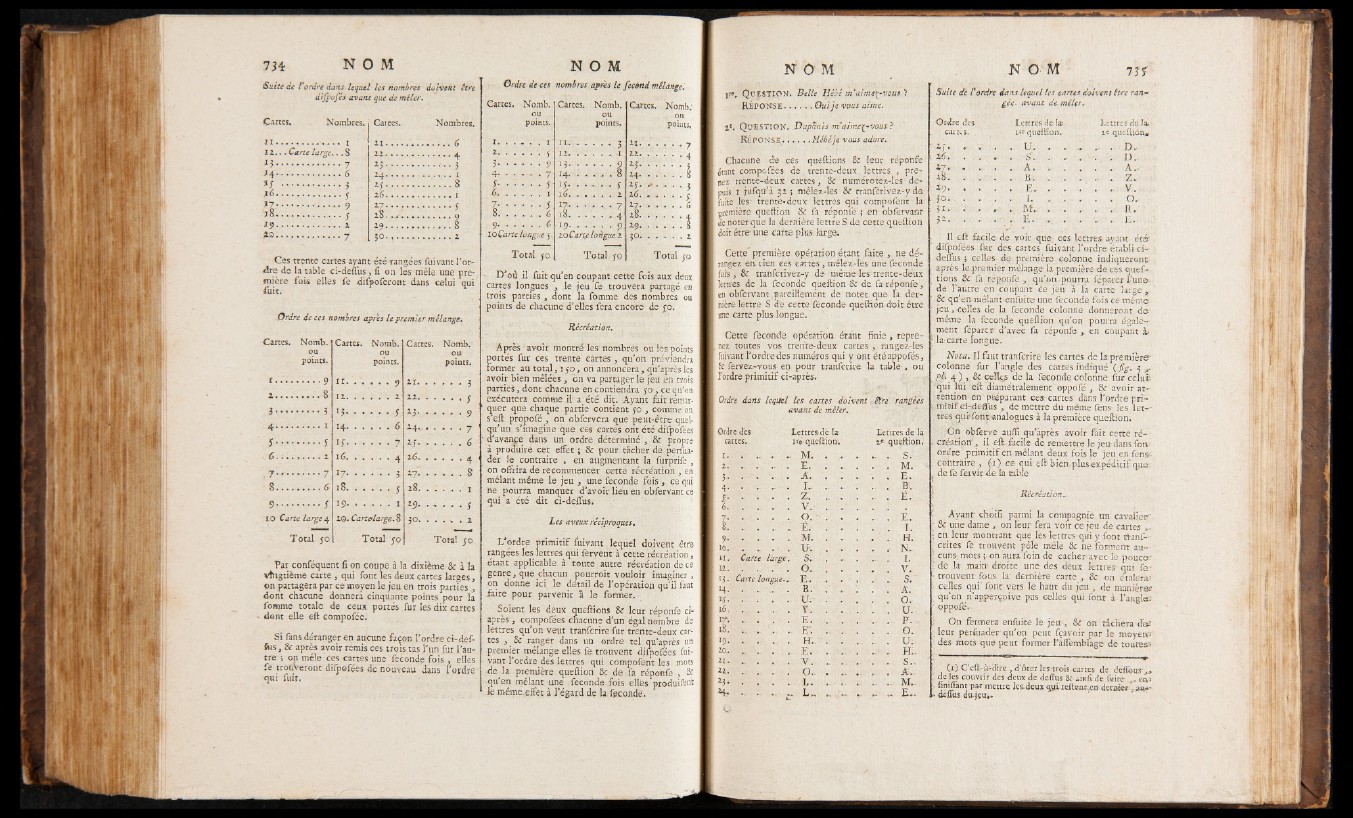 734 N O M
Suite de l'ordre dans lequel les nombres doivent être
disposés avant que de mêler.
Cartes. Nombres.
11............ 1
12...Carte large...8
13............ 7
14............ 6
15............ 3
16............ 5
17............ 9
18............ 5
19............ 2
20............ 7
Cartes. Nombres.
21............ 6
22............ 4
23............ 3
24............ 1
25............ 8
26............ 1
27............ 5
28............ 9
29............ 8
30............ 2
Ces trente cartes ayant été rangées suivant l'or-
dre de la table ci-dessus, si on les mêle une pre-
mière fois elles se disposeront dans celui qui
suit.
Ordre de ces nombres après le premier mélange.
Cartes. Nomb.
ou
points.
1........ 9
2........ 8
3........ 3
4........ 1
5........ 5
6........ 2
7........ 7
8........ 6
9........ 5
10 Carte large 4
Total 50
Cartes. Nomb.
ou
points.
11...... 9
12...... 2
13...... 5
14...... 6
15...... 7
16...... 4
17...... 3
18...... 5
19...... 1
20. Carte large. 8
Total 50
Cartes. Nomb.
ou
points.
21...... 3
22...... 5
23...... 9
24...... 7
25...... 6
26...... 4
27...... 8
28...... 1
29...... 5
30...... 2
Total 50
Par conséquent si on coupe à la dixième & à la
vingtième carte, qui sont les deux cartes larges,
on partagera par ce moyen le jeu en trois parties,
dont chacune donnera cinquante points pour la
somme totale de ceux portés sur les dix cartes
dont elle est composée.
Si sans déranger en aucune façon l'ordre ci-des-
sus, & après avoir remis ces trois tas l'un sur l'au-
tre; on mêle ces cartes une seconde fois, elles
se trouveront disposées de nouveau dans l'ordre
qui suit.
N O M
Ordre de ces nombres après le second mélange.
Cartes. Nomb.
ou
points.
1...... 1
2...... 5
3...... 9
4...... 7
5...... 5
6...... 1
7...... 5
8...... 6
9...... 6
10 Carte longue 5
Total 50
Cartes. Nomb.
ou
points.
11...... 3
12...... 1
13...... 9
14...... 8
15...... 5
16...... 2
17...... 7
18...... 4
19...... 9
20 Carte longue 2
Total 50
Cartes. Nomb.
ou
points.
21...... 7
22...... 4
23...... 5
24...... 8
25...... 3
26...... 5
27...... 6
28...... 4
29...... 8
30...... 2
Total 50
D'où il suit qu'en coupant cette fois aux deux
cartes longues, le jeu se trouvera partagé en
trois parties, dont la somme des nombres ou
points de chacune d'elles sera encore de 50.
Récréation.
Après avoir montré les nombres ou les points
portés sur ces trente cartes, qu'on préviendra
former au total, 150, on annoncera, qu'après les
avoir bien mêlées, on va partager le jeu en trois
parties, dont chacune en contiendra 50, ce qu'on
exécutera comme il a été dit. Ayant fait remar-
quer que chaque partie contient 50, comme on
s'est proposé, on observera que peut-être quel-
qu'un s'imagine que ces cartes ont été disposées
d'avance dans un ordre déterminé, & propre
à produire cet effet; & pour tâcher de persua-
der le contraire, en augmentant la surprise,
on offrira de recommencer cette récréation, en
mêlant même le jeu, une seconde fois, ce qui
ne pourra manquer d'avoir lieu en observant ce
qui a été dit ci-dessus.
Les aveux réciproques.
L'ordre primitif suivant lequel doivent être
rangées les lettres qui servent à cette récréation,
étant applicable à toute autre récréation de ce
genre, que chacun pourroit vouloir imaginer,
on donne ici le détail de l'opération qu'il faut
faire pour parvenir à le former.
Soient les deux questions & leur réponse ci-
après, composées chacune d'un égal nombre de
lettres qu'on veut transcrire sur trente-deux car-
tes, & ranger dans un ordre tel qu'après un
premier mélange elles se trouvent disposées sui-
vant l'ordre des lettres qui composent les mots
de la première question & de sa réponse, &
qu'en mêlant une seconde fois elles produisent
le même effet à l'égard de la seconde.
N O M
1re. QUESTION. Belle Hébé m'aimez-vous ?
RÉPONSE......Oui je vous aime.
2e. QUESTION. Daphnis m'aimez-vous ?
RÉPONSE......Hébé je vous adore.
Chacune de ces questions & leur réponse
étant composées de trente-deux lettres, pre-
nez trente-deux cartes, & numérotez-les de-
puis 1 jusqu'à 32; mêlez-les & transcrivez-y de
suite les trente-deux lettres qui composent la
première question & sa réponse; en observant
de noter que la dernière lettre S de cette question
doit être une carte plus large.
Cette première opération étant faite, ne dé-
rangez en rien ces cartes, mêlez-les une seconde
fois, & transcrivez-y de même les trente-deux
lettres de la seconde question & de sa réponse,
en observant pareillement de noter que la der-
nière lettre S de cette seconde question doit être
une carte plus longue.
Cette seconde opération étant finie, repre-
nez toutes vos trente-deux cartes, rangez-les
suivant l'ordre des numéros qui y ont été apposés,
& servez-vous en pour transcrire la table, ou
l'ordre primitif ci-après.
Ordre dans lequel les cartes doivent être rangées
avant de mêler.
Ordre des cartes. Lettres de la 1re question. Lettres de la 2e question.
1. . . . . M. . . . . S.
2. . . . . E. . . . . M.
3. . . . . A. . . . . E.
4. . . . . I. . . . . B.
5. . . . . Z. . . . . É.
6. . . . . V. . . . .
7. . . . . O. . . . . E.
8. . . . . E. . . . . I.
9. . . . . M. . . . . H.
10. . . . . U. . . . . N.
11. Carte large. S. . . . . I.
12. . . . . O. . . . . V.
13. Carte longue.. E. . . . . S.
14. . . . . B. . . . . A.
15. . . . . U. . . . . O.
16. . . . . Y. . . . . U.
17. . . . . E. . . . . P.
18. . . . . E. . . . . O.
19. . . . . H. . . . . U.
20. . . . . E. . . . . H.
21. . . . . V. . . . . S.
22. . . . . O. . . . . A.
23. . . . . L. . . . . M.
24. . . . . L. . . . . E.
N O M 735
Suite de l'ordre dans lequel les cartes doivent être ran-
gée. avant de mêler.
Ordre des cartes. Lettres de la 1re question. Lettres de la 2e question.
25. . . . . U. . . . . D.
26. . . . . S. . . . . D.
27. . . . . A. . . . . A.
28. . . . . B. . . . . Z.
29. . . . . E. . . . . V.
30. . . . . I. . . . . O.
31. . . . . M. . . . . R.
32. . . . . E. . . . . E.
Il est facile de voir que ces lettres ayant été
disposées sur des cartes suivant l'ordre établi ci-
dessus; celles de première colonne indiqueront
après le premier mélange la première de ces ques-
tions & sa réponse, qu'on pourra séparer l'une
de l'autre en coupant ce jeu à la carte large,
& qu'en mêlant ensuite une seconde fois ce même
jeu, celles de la seconde colonne donneront de
même la seconde question qu'on pourra égale-
ment séparer d'avec sa réponse, en coupant à
la carte longue.
Nota. Il faut transcrire les cartes de la première
colonne sur l'angle des cartes indiqué (fig. 3,
pl. 4), & celles de la seconde colonne sur celui
qui lui est diamétralement opposé, & avoir at-
tention en préparant ces cartes dans l'ordre pri-
mitif ci-dessus, de mettre du même sens les let-
tres qui sont analogues à la première question.
On observe aussi qu'après avoir fait cette ré-
création, il est facile de remettre le jeu dans son
ordre primitif en mêlant deux fois le jeu en sens
contraire, (1) ce qui est bien plus expéditif que
de se servir de la table
Récréation.
Ayant choisi parmi la compagnie un cavalier
& une dame, on leur fera voir ce jeu de cartes,
en leur montrant que les lettres qui y sont trans-
crites se trouvent pêle mêle & ne forment au-
cuns mots; on aura soin de cacher avec le pouce
de la main droite une des deux lettres qui se
trouvent sous la dernière carte, & on étalera
celles qui sont vers le haut du jeu, de manière
qu'on n'apperçoive pas celles qui sont à l'angle
opposé.
On fermera ensuite le jeu, & on tâchera de
leur persuader qu'on peut sçavoir par le moyen
des mots que peut former l'assemblage de toutes
(1) C'est-à-dire, d'ôter les trois cartes de dessous,
de les couvrir des deux de dessus & ainsi de suite, en
finissant par mettre les deux qui restent en dernier, au-
dessus du jeu.